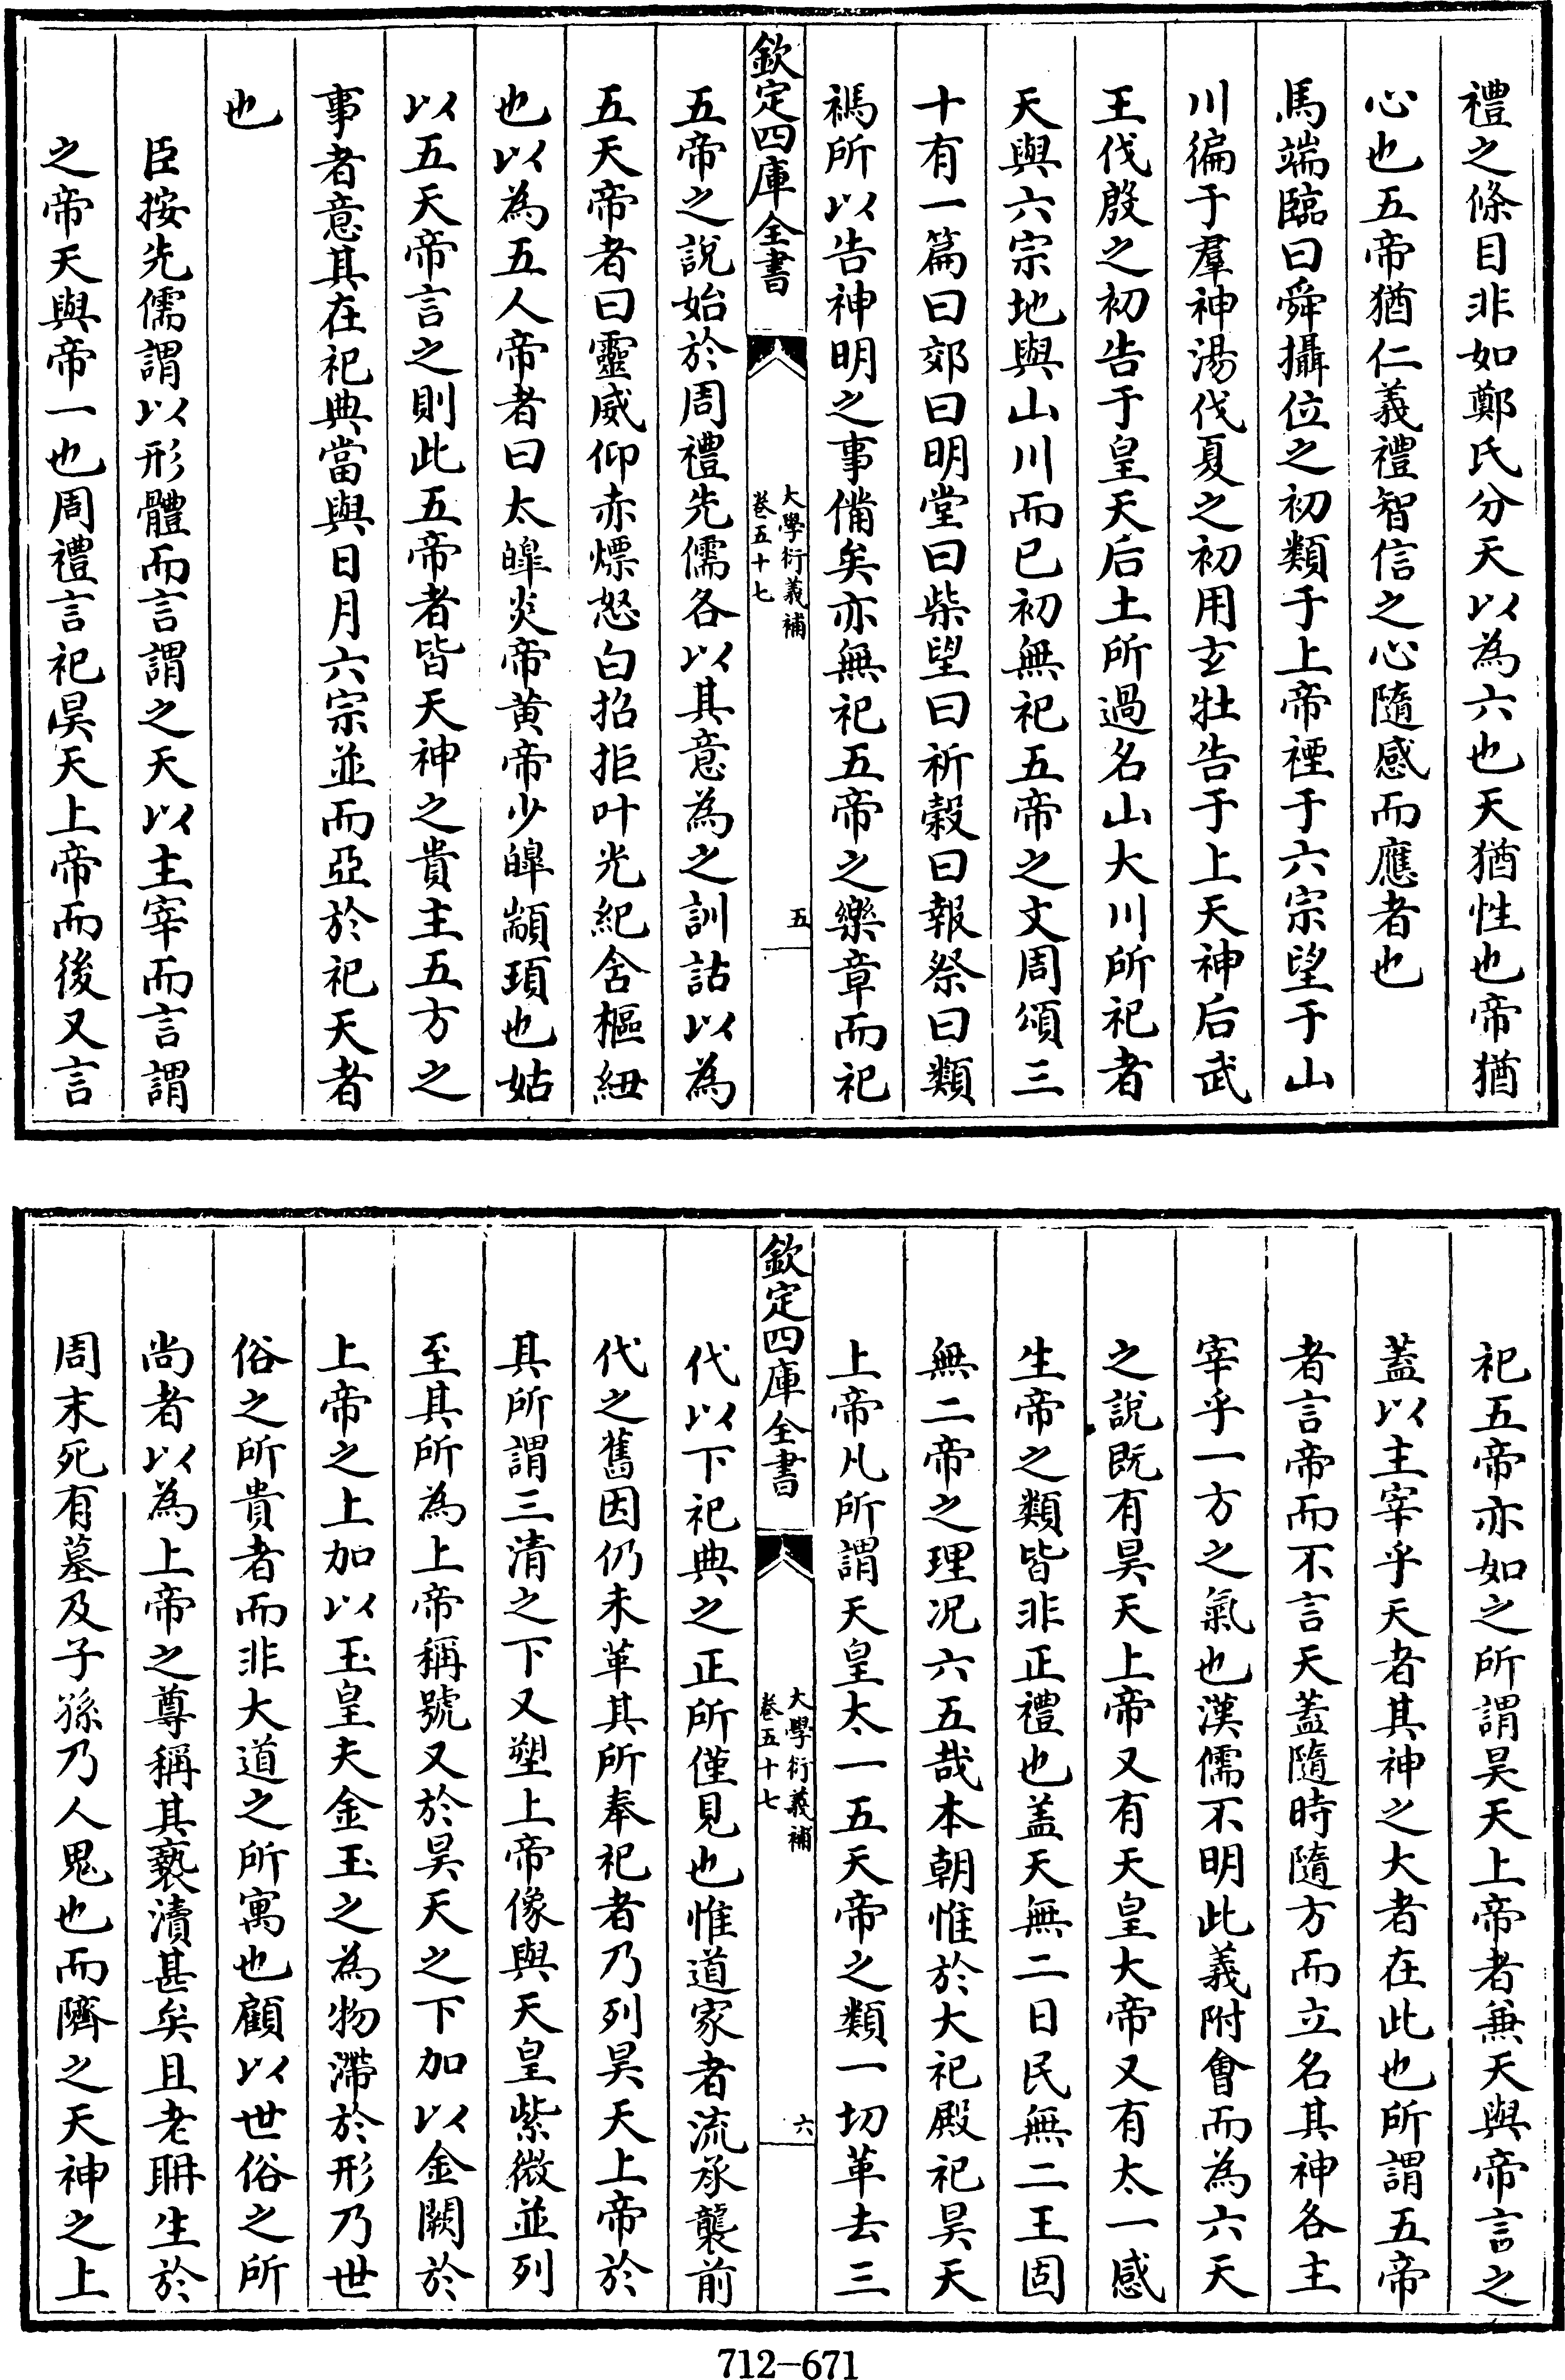 禮之條目非如鄭氏分天以為六也天猶性也帝猶
心也五帝猶仁義禮智信之心隨感而應者也
馬端臨曰舜攝位之初類于上帝禋于六宗望于山
川徧于羣神湯伐夏之初用玄牡告于上天神后武
王伐殷之初告于皇天后土所過名山大川所祀者
天與六宗地與山川而已初無祀五帝之文周頌三
十有一篇曰郊曰明堂曰柴望曰祈穀曰報祭曰類
禡所以告神明之事備矣亦無祀五帝之樂章而祀
欽定四庫全書
大學衍義補
卷五十七
五
五帝之說始於周禮先儒各以其意為之訓詁以為
五天帝者曰靈威仰赤熛怒白招拒叶光紀含樞紐
也以為五人帝者曰太皥炎帝黄帝少皥顓頊也姑
以五天帝言之則此五帝者皆天神之貴主五方之
事者意其在祀典當與日月六宗並而亞於祀天者
也
臣按先儒謂以形體而言謂之天以主宰而言謂
之帝天與帝一也周禮言祀昊天上帝而後又言
祀五帝亦如之所謂昊天上帝者兼天與帝言之
蓋以主宰乎天者其神之大者在此也所謂五帝
者言帝而不言天蓋隨時隨方而立名其神各主
宰乎一方之氣也漢儒不明此義附會而為六天
之說既有昊天上帝又有天皇大帝又有太一感
生帝之類皆非正禮也蓋天無二日民無二王固
無二帝之理况六五哉本朝惟於大祀殿祀昊天
上帝凡所謂天皇太一五天帝之類一切革去三
欽定四庫全書
大學衍義補
卷五十七
六
代以下祀典之正所僅見也惟道家者流承襲前
代之舊因仍未革其所奉祀者乃列昊天上帝於
其所謂三清之下又塑上帝像與天皇紫微並列
至其所為上帝稱號又於昊天之下加以金闕於
上帝之上加以玉皇夫金玉之為物滯於形乃世
俗之所貴者而非大道之所寓也顧以世俗之所
尚者以為上帝之尊稱其褻瀆甚矣且老耼生於
周末死有墓及子孫乃人鬼也而隮之天神之上
712-671